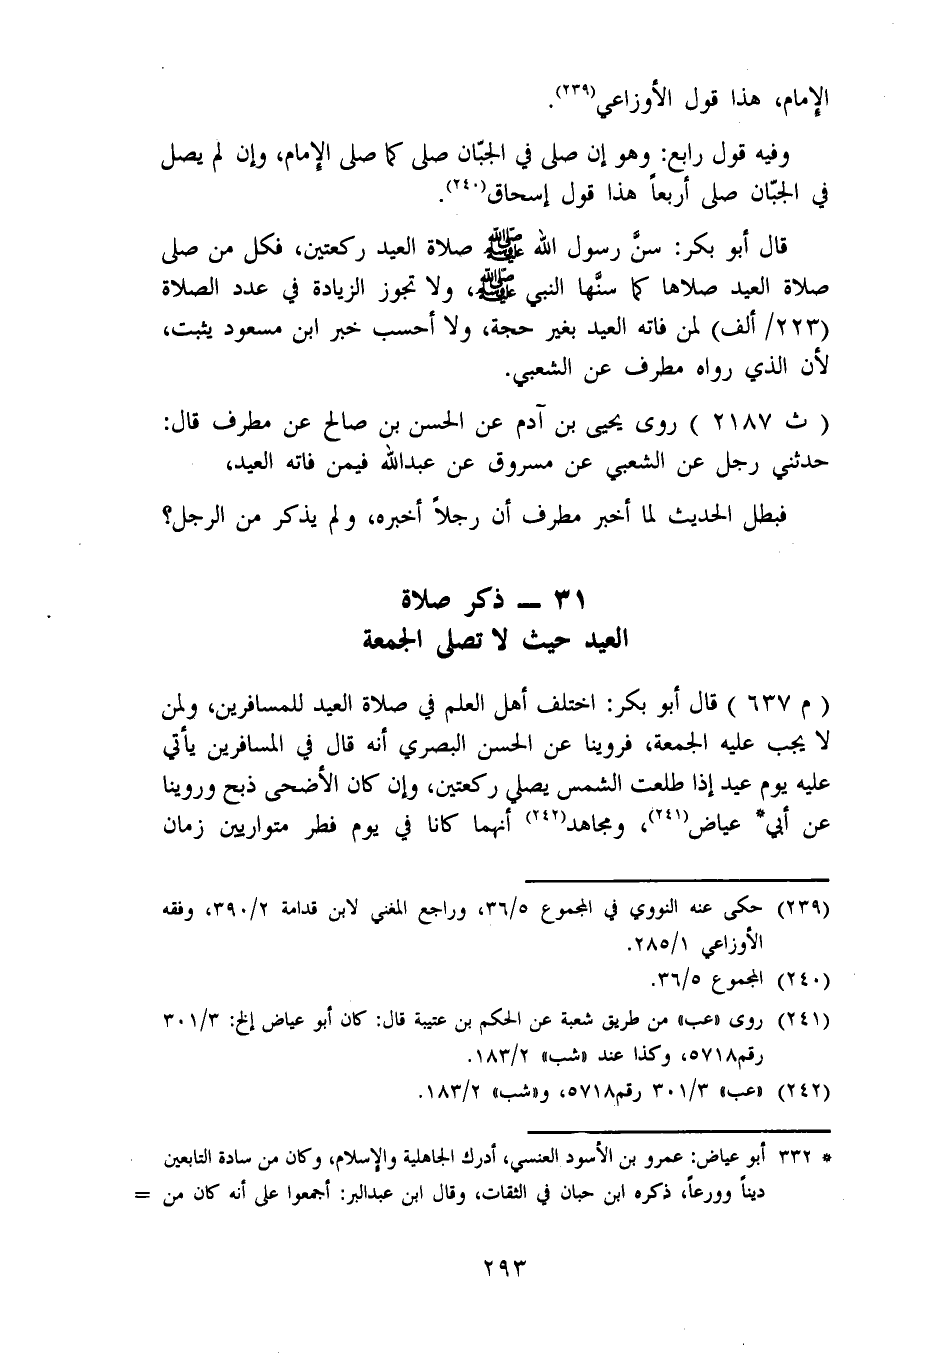 الإمام، هذا قول الأوزاعي(٢٣٩).
وفيه قول رابع: وهو إن صلى في الجبّان صلى كما صلى الإمام، وإن لم يصل
في الجبّان صلى أربعاً هذا قول إسحاق(٢٤٠).
قال أبو بكر: سنَّ رسول الله ﷺ صلاة العيد ركعتين، فكل من صلى
صلاة العيد صلاها كما سنَّها النبي ﷺ، ولا تجوز الزيادة في عدد الصلاة
(٢٢٣/ ألف) لمن فاته العيد بغير حجة، ولا أحسب خبر ابن مسعود يثبت،
لأن الذي رواه مطرف عن الشعبي.
( ث ٢١٨٧ ) روى يحيى بن آدم عن الحسن بن صالح عن مطرف قال:
حدثني رجل عن الشعبي عن مسروق عن عبدالله فيمن فاته العيد،
فبطل الحديث لما أخبر مطرف أن رجلاً أخبره، ولم يذكر من الرجل؟
٣١ ــ ذكر صلاة
العيد حيث لا تصلى الجمعة
( م ٦٣٧ ) قال أبو بكر: اختلف أهل العلم في صلاة العيد للمسافرين، ولمن
لا يجب عليه الجمعة، فروينا عن الحسن البصري أنه قال في المسافرين يأتي
عليه يوم عيد إذا طلعت الشمس يصلي ركعتين، وإن كان الأضحى ذبح وروينا
عن أبي* عياض(٢٤١)، ومجاهد(٢٤٢) أنهما كانا في يوم فطر متواريين زمان
(٢٣٩) حكى عنه النووي في المجموع ٣٦/٥، وراجع المغني لابن قدامة ٣٩٠/٢، وفقه
الأوزاعي ٢٨٥/١.
(٢٤٠) المجموع ٣٦/٥.
(٢٤١) روى «عب» من طريق شعبة عن الحكم بن عتيبة قال: كان أبو عياض إلخ: ٣٠١/٣
رقم٥٧١٨، وكذا عند «شب» ١٨٣/٢.
(٢٤٢) «عب» ٣٠١/٣ رقم٥٧١٨، و«شب» ١٨٣/٢.
* ٣٣٢ أبو عياض: عمرو بن الأسود العنسي، أدرك الجاهلية والإسلام، وكان من سادة التابعين
ديناً وورعاً، ذكره ابن حبان في الثقات، وقال ابن عبدالبر: أجمعوا على أنه كان من =
٢٩٣